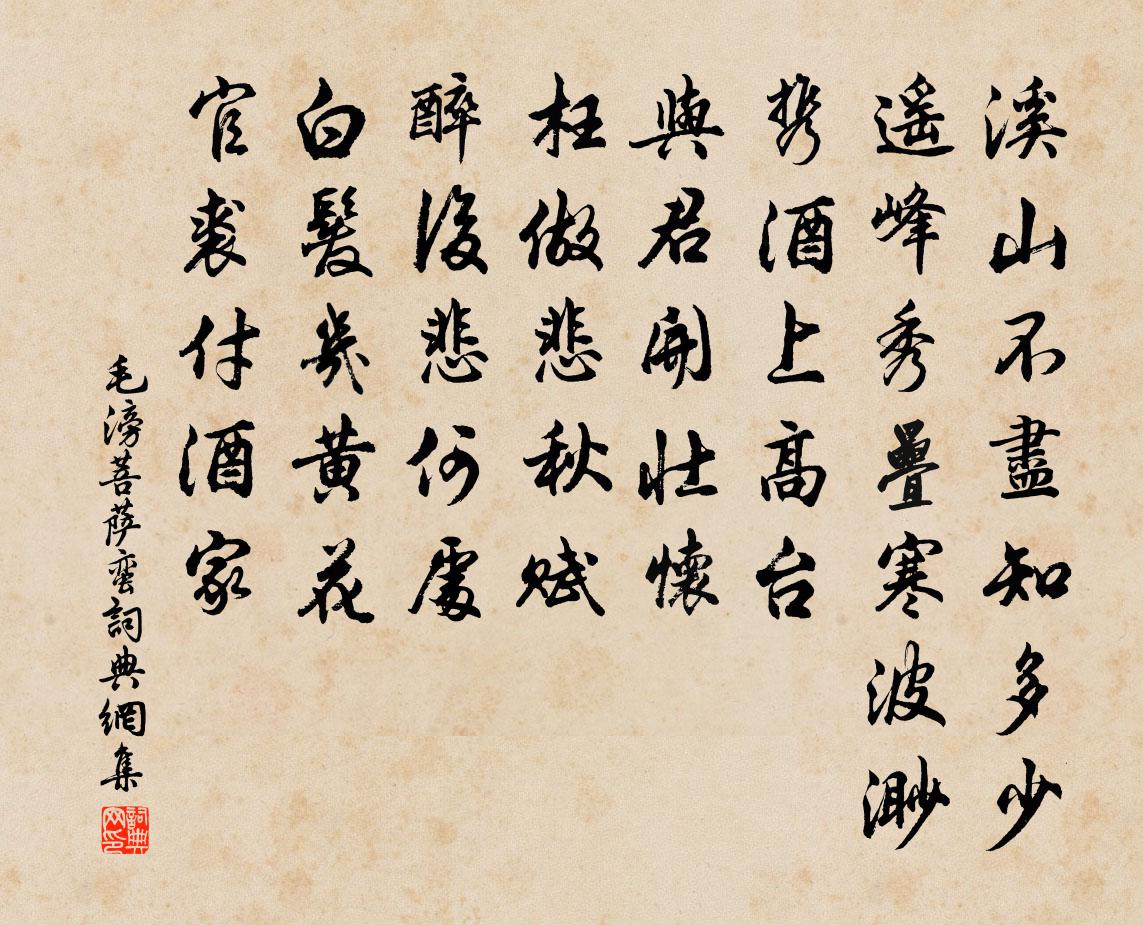 溪山不盡知多少
遥峰秀疊寒波渺
携酒上高台
與君開壯懷
枉做悲秋賦
醉後悲何處
白髮幾黃花
官裘付酒家
毛滂菩薩蠻詞典網集
詞典网印